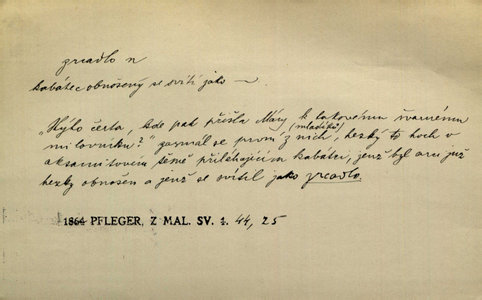 zrcadlo n
kabátec obnošený se svítí jako —
"Kýho čerta, kde pak přišla Máry k takovému švarnému
milovníku?" zasmál se první z nich, (mladíků) hezký to hoch v
aksamitovém těsně přiléhajícím kabátci, jenž byl arci již
hezky obnošen a jenž se svítil jako zrcadlo.
1864 PFLEGER, Z MAL. SV. 1. 44, 25